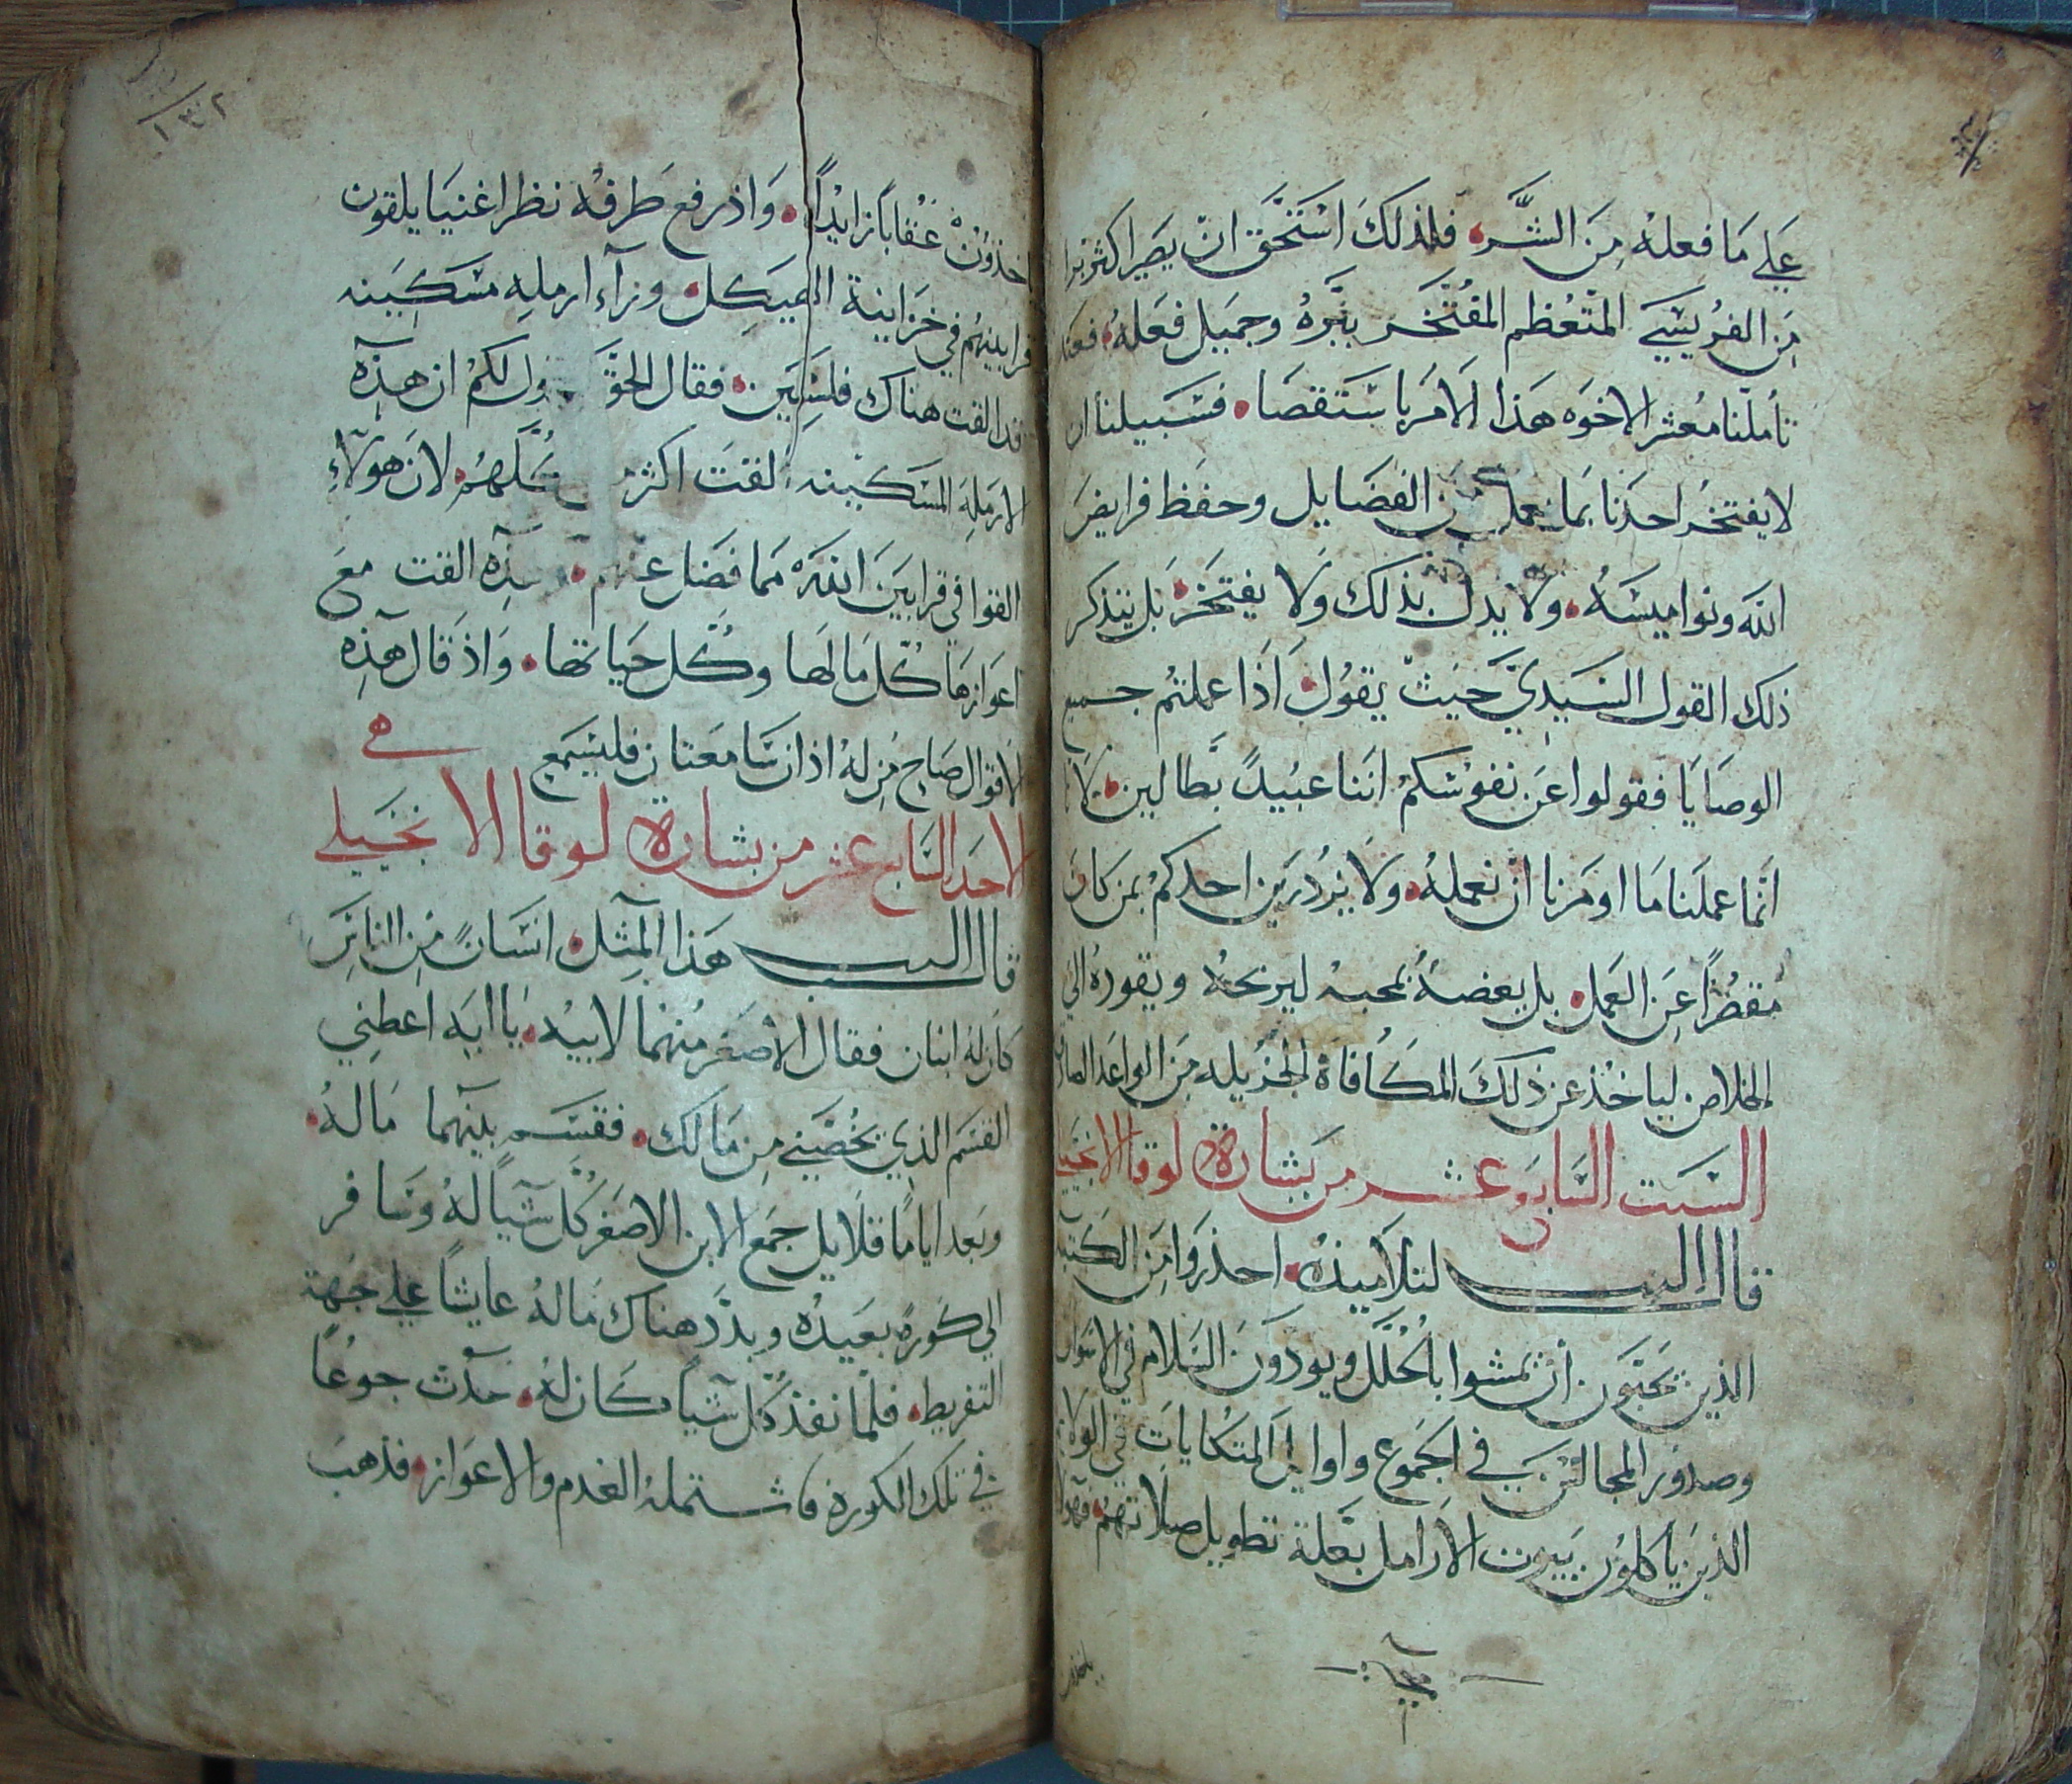 علي ما فعله من الشر فلذلك استحق ان يصير اكثر برا
من الفريسي المتعظم المفتخر ببره وجميل فعله فعند
تأملنا معشر الاخوه هذا الامر باستقصا فسبيلنا ان
لا يفتخر احدنا بما يعمل من الفضايل وحفظ فرايض
الله ونواميسه ولا يدل بذلك ولا يفتخر بل يتذكر
ذلك القول السيدي حيث يقول اذا عملتم جميع
الوصايا فقولوا عن نفوسكم اننا عبيد بطالين لانا
انما عملنا ما اومرنا ان نعمله ولا يزدرين احدكم بمن كان
مقصرا عن العمل بل يعضده بمحبه ليربحه ويقوده الي
الخلاص لياخذ عن ذلك المكافاة الجزيله من الواعد الصادق
السبت السابع عشر من بشارة لوقا الانجيلي
قال الرب لتلاميذه احذروا من الكتبه
الذين يحبون أن يمشوا بالحلل ويودون السلام في الاسواق
وصدور المجالس في الجموع واوايل المتكايات في الولايم
الذين ياكلون بيوت الارامل بعلة تطويل صلاتهم فهولا
ياخذون
١٣٢
ياخذون عقابا زايدا واذ رفع طرفه نظر اغنيا يلقون
قرابينهم في خزاينة الهيكل وراء ارمله مسكينه
قد القت هناك فلسين فقال الحق ول لكم ان هذه
الارمله المسكينه القت اكثر كلهم لان هولاء
القوا في قرابين الله مما فضل عنهم هذه القت مع
اعوازها كل ما لها وكل حياتها واذ قال هذه
الاقوال صاح من له اذان سامعتان فليسمع
الاحد السابع عشر من بشارة لوقا الانجيلي
قال الرب هذا المثل انسان من الناس
كان له ابنان فقال الاصغر منهما لابيه يا ابه اعطني
القسم الذي يخصني من مالك فقسم بينهما ماله
وبعد اياما قلايل جمع الابن الاصغر كل شيا له وسافر
الي كورة بعيده وبذر هناك ماله عايشا علي جهة
التفريط فلما نفذ كل شيا كان له حدث جوعا
في تلك الكورة فاشتمله العدم والاعواز فذهب